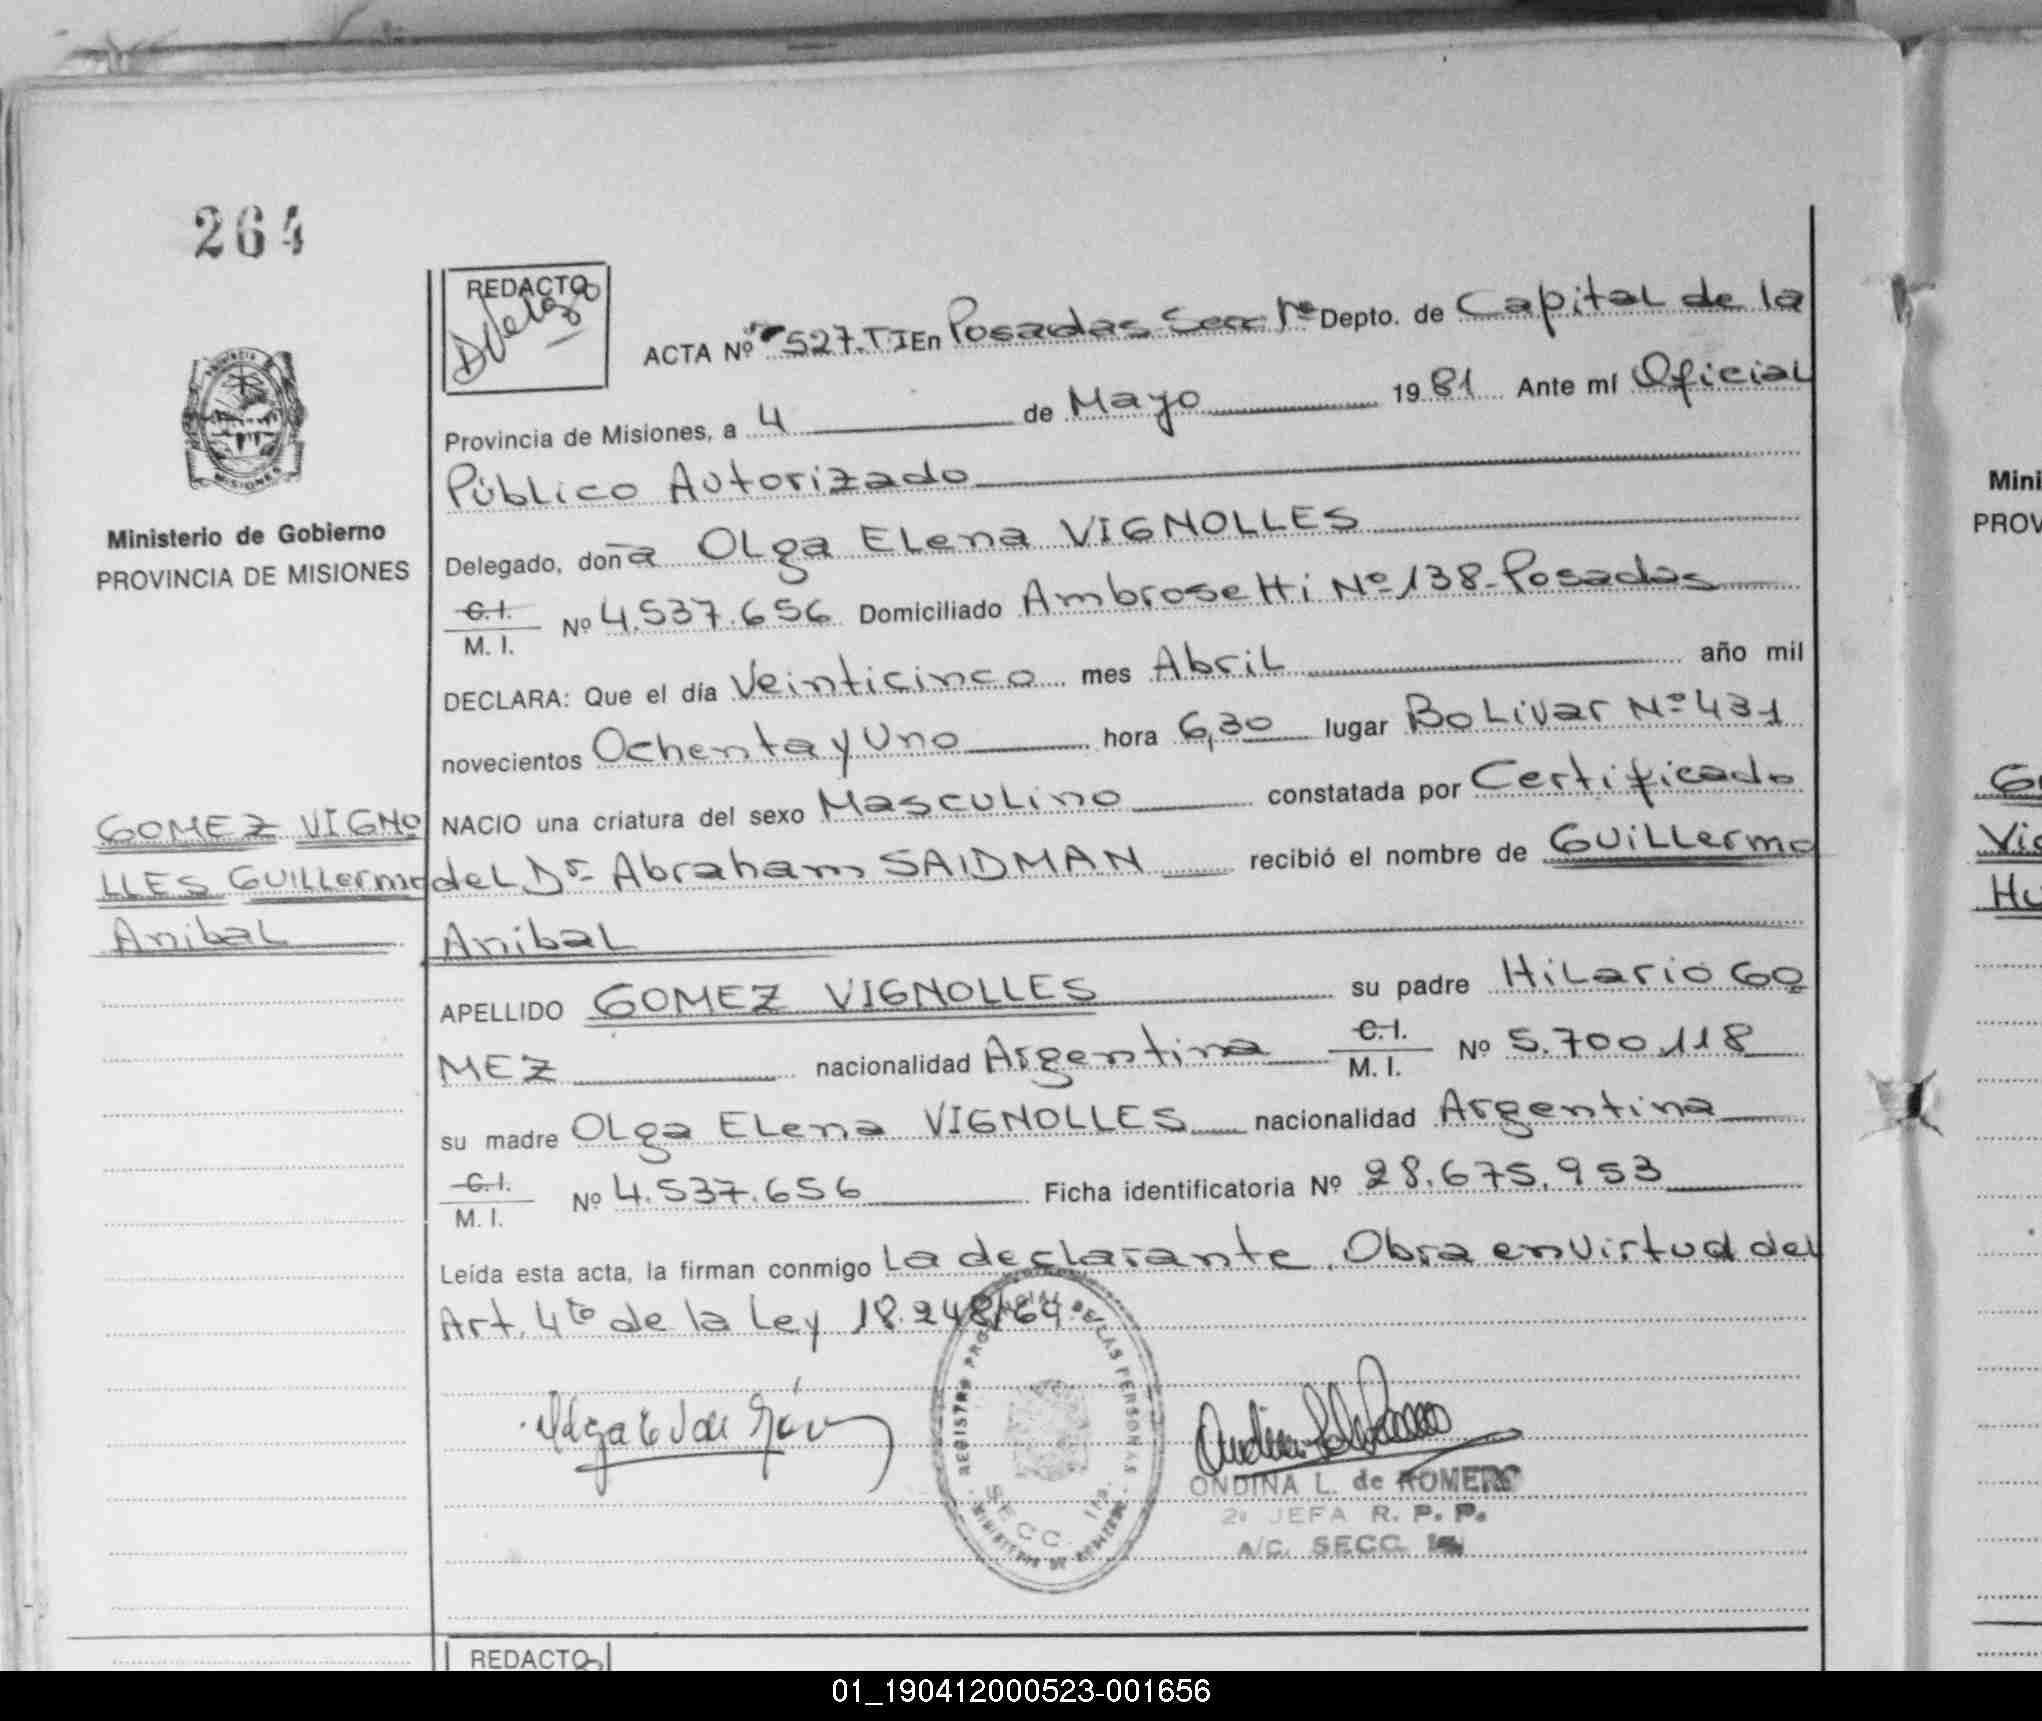 264
REDACTO
ACTA Nº 527.TI En Posadas Secc 1ª Depto. de Capital de la
Provincia de Misiones, a 4 de Mayo 1981 Ante mí Oficial
Público Autorizado
Ministerio de Gobierno
PROVINCIA DE MISIONES
Delegado, doña Olga Elena VIGNOLLES
C.I. / M.I. Nº 4.537.656 Domiciliado Ambrosetti Nº 138-Posadas
DECLARA: Que el día Veinticinco mes Abril año mil
novecientos Ochenta y Uno hora 6,30 lugar Bolivar Nº 431
NACIO una criatura del sexo Masculino constatada por Certificado
del Dr. Abraham SAIDMAN recibió el nombre de Guillermo
Anibal
GOMEZ VIGNO
LLES Guillermo
Anibal
APELLIDO GOMEZ VIGNOLLES su padre Hilario GO
MEZ nacionalidad Argentina C.I. / M.I. Nº 5.700.118
su madre Olga Elena VIGNOLLES nacionalidad Argentina
C.I. / M.I. Nº 4.537.656 Ficha identificatoria Nº 28.675.953
Leída esta acta, la firman conmigo la declarante. Obra en virtud del
Art. 4to de la Ley 18.248/69
REGISTRO PROVINCIAL DE LAS PERSONAS
SECC. 1ra.
MINISTERIO DE GOBIERNO
ONDINA L. de ROMERO
2ª JEFA R. P. P.
A/C. SECC. 1ª
REDACTO
Mini
PROV
GO
Vig
Hu
01_190412000523-001656